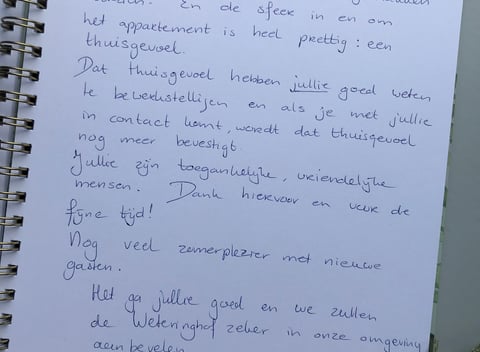 En de sfeer in en om
het appartement is heel prettig: een
thuisgevoel.
Dat thuisgevoel hebben jullie goed weten
te bewerkstelligen en als je met jullie
in contact komt, wordt dat thuisgevoel
nog meer bevestigt.
Jullie zijn toegankelijke, vriendelijke
mensen. Dank hiervoor en voor de
fijne tijd!
Nog veel zomerplezier met nieuwe
gasten.
Het ga jullie goed en we zullen
de Weteringhof zeker in onze omgeving
aanbevelen